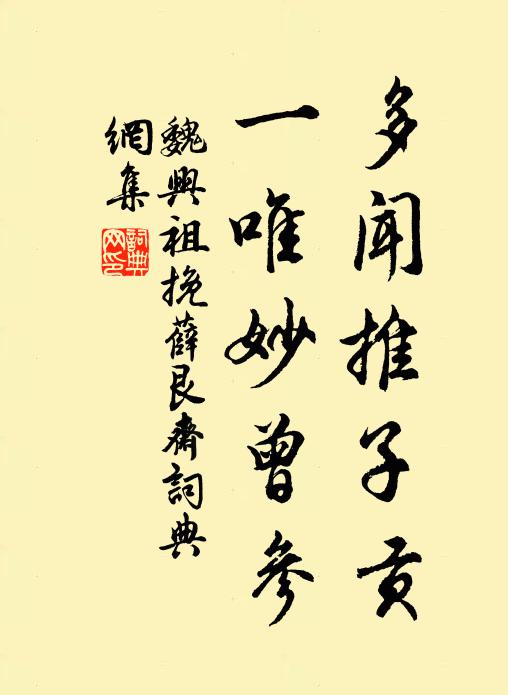 多闻推子贡
一唯妙曾参
魏興祖挽薛艮斋詞典
網集
詞典网印